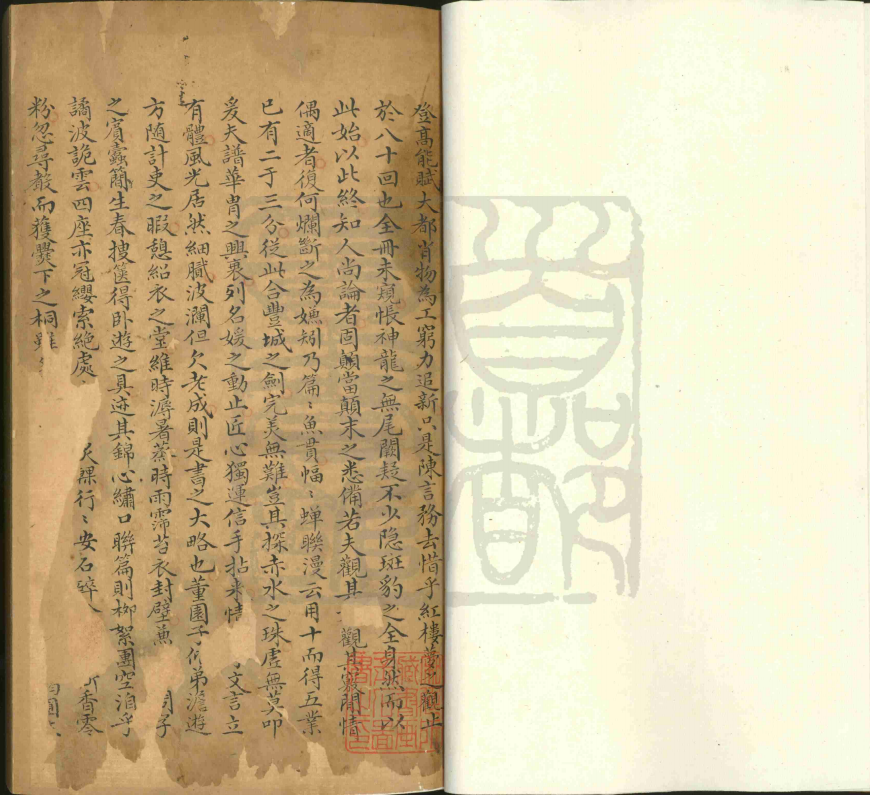 登高能賦大都肖物為工窮力追新只是陳言務去惜乎紅樓夢之觀止
於八十回也全冊未窺悵神龍之無尾闕疑不少隱斑豹之全身然而以
此始以此終知人尚論者固當顛末之悉備若夫觀其 觀其竅閒情
偶適者復何爛斷之為嫌矧乃篇〻魚貫幅〻蟬聯漫云用十而得五業
已有二于三分從此合豐城之劍完美無難豈其探赤水之珠虛無莫叩
爰夫譜華胄之興衰列名媛之動止匠心獨運信手拈来情 文言立
有體風光居然細膩波瀾但欠老成則是書之大略也董園子偕弟澹遊
方随計吏之暇憩紹衣之堂維時溽暑蒸時雨霈苔衣封壁兼
之賓蠹簡生春搜篋得卧遊之具迹其錦心繡口聯篇則柳絮團空洎乎
譎波詭雲四座亦冠纓索絕處 灰課行〻安石碎 香零
粉忽尋散而獲爨下之桐雖